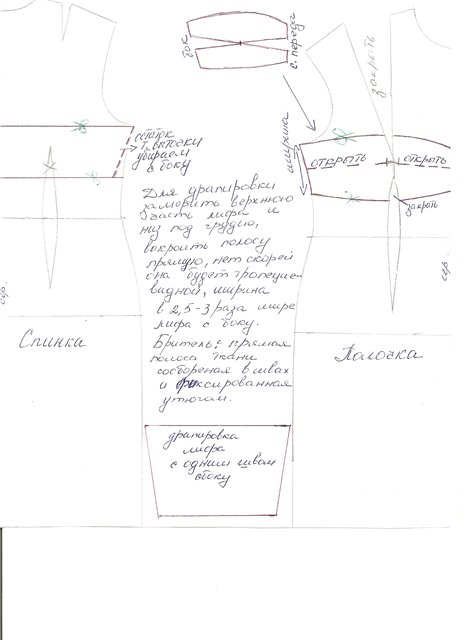 бок
с. переда
закрыть
ширина
ОТКРЫТЬ
ОТКРЫТЬ
закрыть
остаток
т. вытачки
убираем
с боку
Для драпировки
замерить верхнюю
часть лифа и
низ под грудью,
выкроить полосу
прямую, нет скорей
она будет трапецие-
видной, ширина
в 2,5-3 раза шире
лифа с боку.
Бритель: прямая
полоса ткани
сосбореная в швах
и фиксированная
утюгом.
сер.
сер.
Спинка
Полочка
драпировка
лифа
с одним швом
сбоку